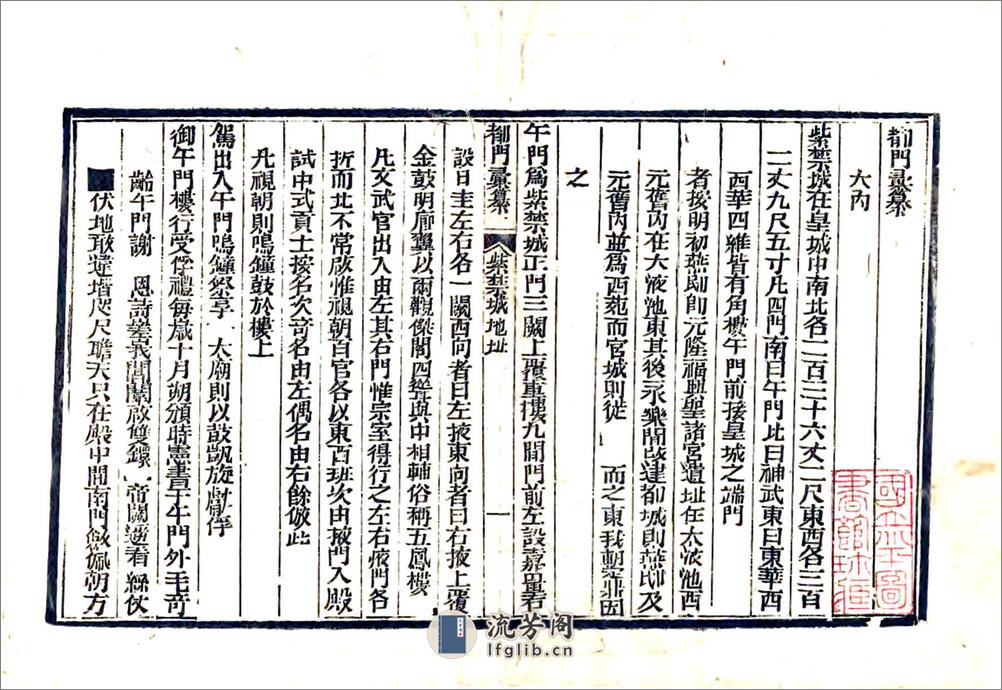 都門彙纂
大內
紫禁城在皇城中南北各二百三十六丈二尺東西各三百
二丈九尺五寸凡四門南曰午門北曰神武東曰東華西
西華四維皆有角樓午門前接皇城之端門
者按明初燕邸即元隆福興聖諸宮遺址在太液池西
元舊內在大液池東其後永樂間改建都城則燕邸及
元舊內並為西苑而宮城則徙 而之東我朝鼎因
之
午門為紫禁城正門三闕上覆重樓九間門前左設嘉量右
設日圭左右各一闕西向者曰左掖東向者曰右掖上覆
都門彙纂 紫禁城地址 一
金鼓明廊翼以兩觀傑閣四聳與中相輔俗稱五鳳樓
凡文武官出入由左其右門惟宗室得行之左右掖門各
折而北不常啟惟視朝百官各以東西班次由掖門入殿
試中式貢士按名次奇名由左偶名由右餘倣此
凡視朝則鳴鐘鼓於樓上
駕出入午門鳴鐘祭享 太廟則以鼓凱旋獻俘
御午門樓行受俘禮每歲十月朔頒時憲書于午門外毛奇
齡午門謝 恩詩 閶闔啟雙鐶 帝闕遥看 綵仗
伏地敢違堦咫尺瞻天只在殿中間南門 佩朝方
國立北平圖書館珍藏
流芳阁
lfglib.cn